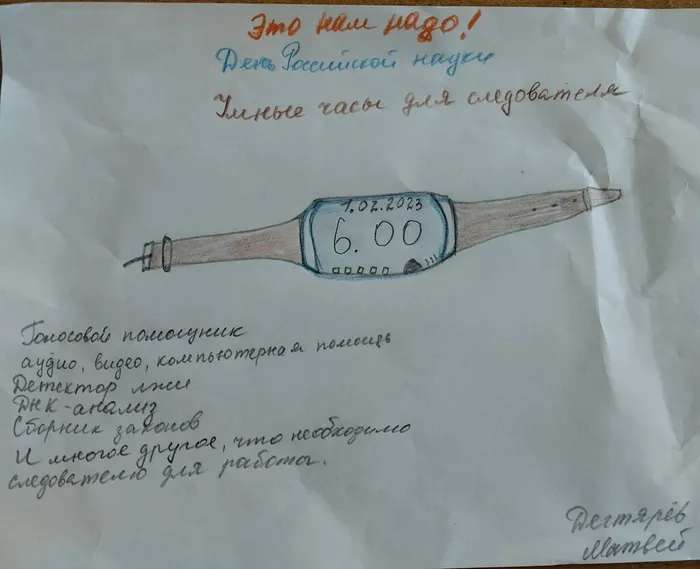 Это нам надо!
День Российской науки
Умные часы для следователя
1.02.2023
6.00
Голосовой помощник
аудио, видео, компьютерная помощь
Детектор лжи
ДНК-анализ
Сборник законов
И многое другое, что необходимо
следователю для работы.
Дегтярёв
Матвей